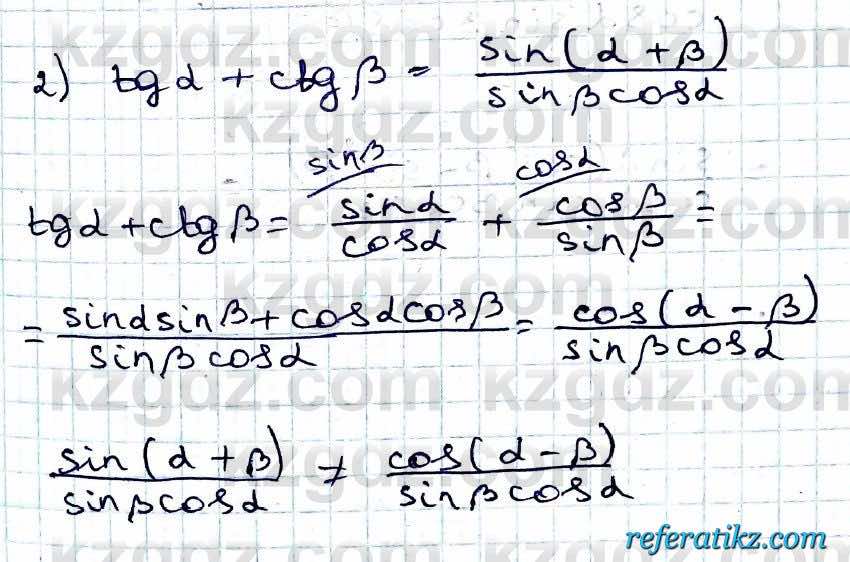 2) tgα + ctgβ = sin(α + β) / sinβcosα
sinβ cosα
tgα + ctgβ = sinα / cosα + cosβ / sinβ =
= sinαsinβ + cosαcosβ / sinβcosα = cos(α - β) / sinβcosα
sin(α + β) / sinβcosα ≠ cos(α - β) / sinβcosα
kzgdz.com
referatikz.com